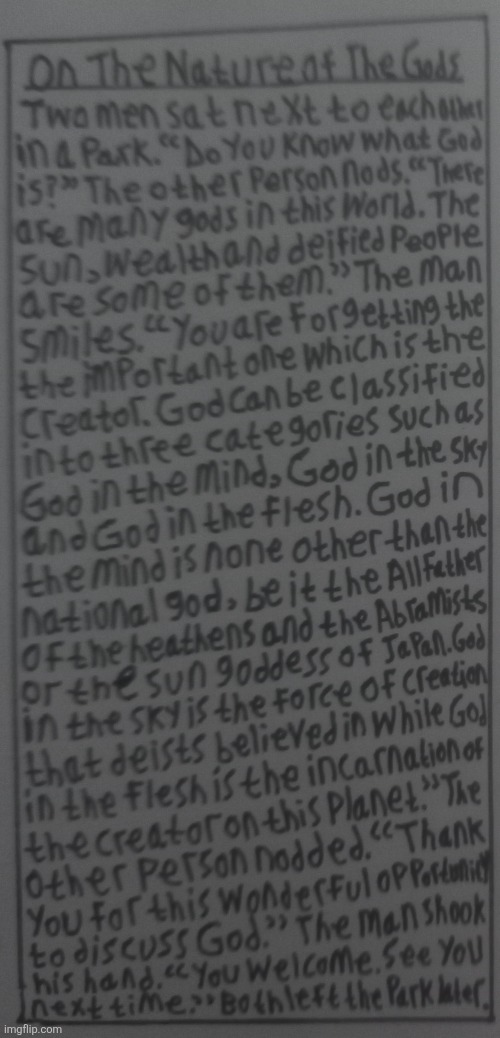 On The Nature of The Gods
Two men sat next to each other
in a Park. "Do You Know what God
is?" The other Person nods. "There
are many gods in this World. The
sun, wealth and deified People
are some of them." The man
smiles. "You are Forgetting the
the important one which is the
Creator. God can be classified
into three categories such as
God in the mind, God in the sky
and God in the flesh. God in
the mind is none other than the
national god, be it the All Father
of the heathens and the Abramists
or the sun goddess of Japan. God
in the sky is the force of Creation
that deists believed in While God
in the flesh is the incarnation of
the creator on this Planet." The
other Person nodded. "Thank
You for this wonderful opportunity
to discuss God." The man shook
his hand. "You Welcome. See You
next time." Both left the Park later.
imgflip.com